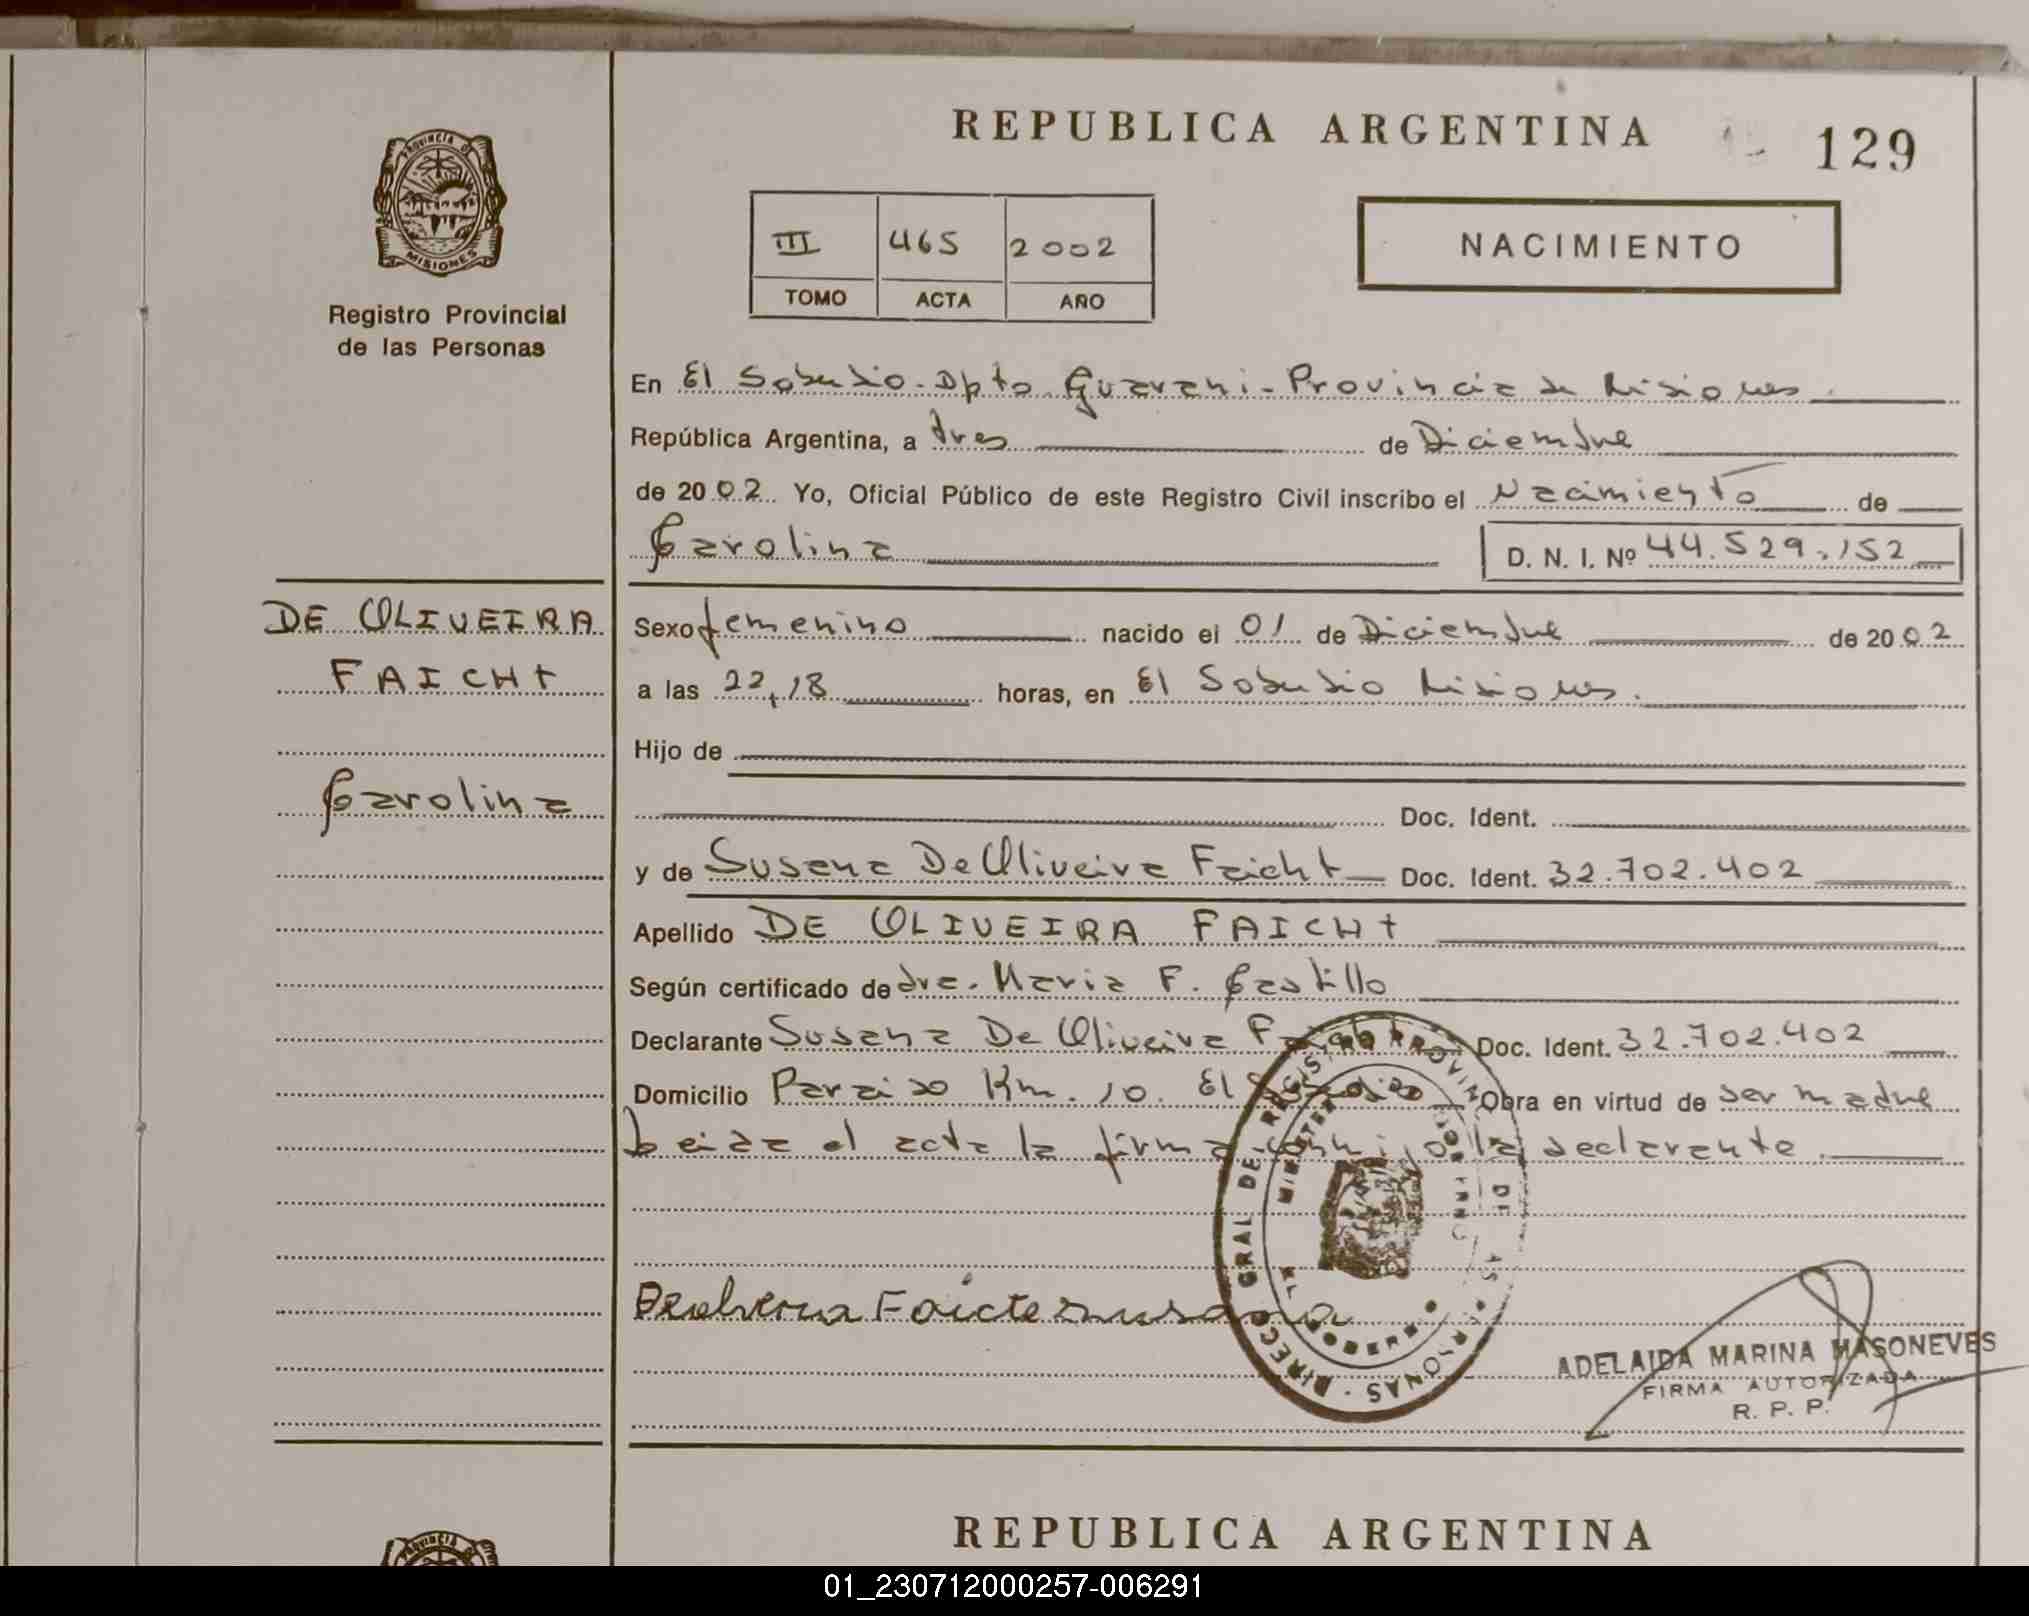 REPUBLICA ARGENTINA
129
PROVINCIA DE
MISIONES
Registro Provincial
de las Personas
III 465 2002
TOMO ACTA AÑO
NACIMIENTO
En El Soberbio. Dpto. Guarani - Provincia de Misiones.
República Argentina, a tres de Diciembre
de 2002 Yo, Oficial Público de este Registro Civil inscribo el Nacimiento de
Carolina
D. N. I. Nº 44.529.152
DE OLIVEIRA
FAICHT
Carolina
Sexo femenino nacido el 01 de Diciembre de 2002
a las 22,18 horas, en El Soberbio Misiones.
Hijo de
Doc. Ident.
y de Susana De Oliveira Faicht Doc. Ident. 32.702.402
Apellido DE OLIVEIRA FAICHT
Según certificado de dra. Maria F. Castillo
Declarante Susana De Oliveira Faicht Doc. Ident. 32.702.402
Domicilio Paraiso Km. 10. El Soberbio Obra en virtud de ser madre
Leida el acta la firma conmigo la declarante.
Faicte susana
DIRECC GRAL DEL REGISTRO PROVINC DE LAS PERSONAS
MINISTERIO DE GOBIERNO
ADELAIDA MARINA MASONEVES
FIRMA AUTORIZADA
R. P. P.
REPUBLICA ARGENTINA
PROVINCIA
01_230712000257-006291